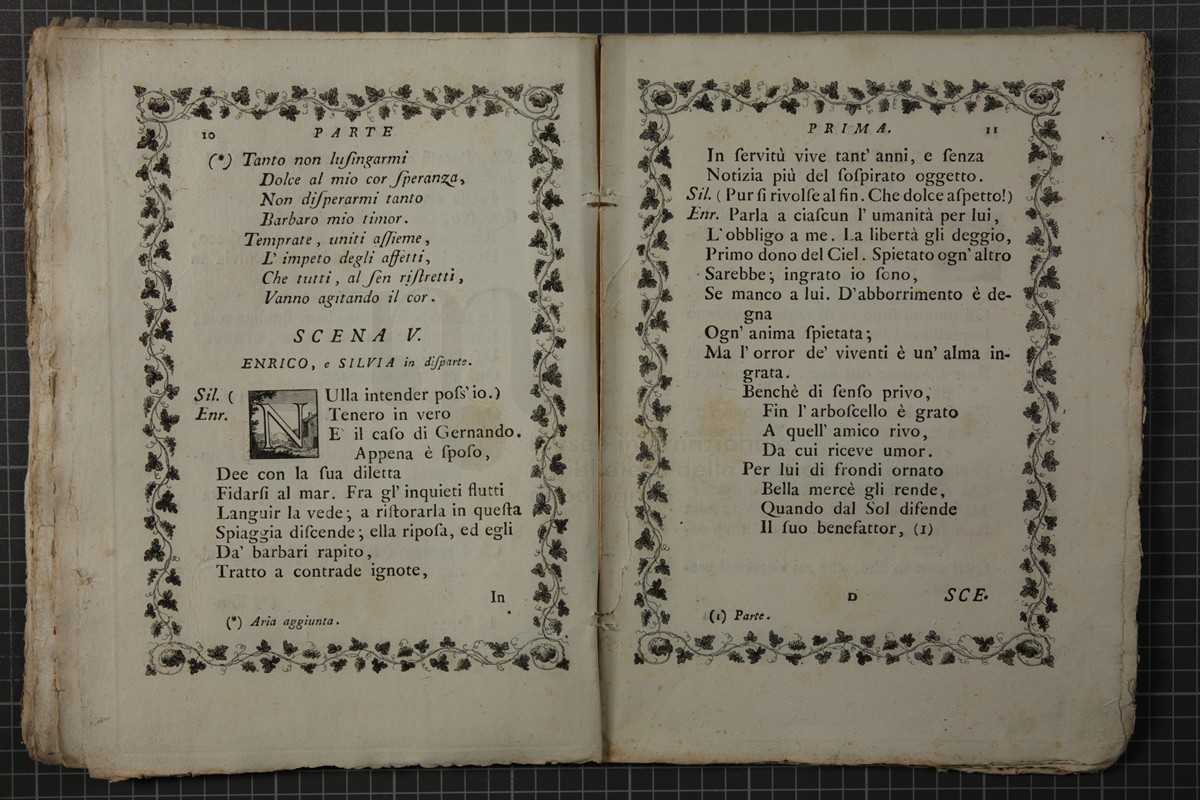 10 PARTE
(*) Tanto non luſingarmi
Dolce al mio cor ſperanza,
Non diſperarmi tanto
Barbaro mio timor.
Temprate, uniti aſſieme,
L' impeto degli affetti,
Che tutti, al ſen riſtretti,
Vanno agitando il cor.
SCENA V.
ENRICO, e SILVIA in diſparte.
Sil. ( NUlla intender poſs' io.)
Enr. Tenero in vero
E' il caſo di Gernando.
Appena è ſpoſo,
Dee con la ſua diletta
Fidarſi al mar. Fra gl' inquieti flutti
Languir la vede; a riſtorarla in queſta
Spiaggia diſcende; ella ripoſa, ed egli
Da' barbari rapito,
Tratto a contrade ignote,
In
(*) Aria aggiunta.
PRIMA. 11
In ſervitù vive tant' anni, e ſenza
Notizia più del ſoſpirato oggetto.
Sil. (Pur ſi rivolſe al fin. Che dolce aſpetto!)
Enr. Parla a ciaſcun l' umanità per lui,
L' obbligo a me. La libertà gli deggio,
Primo dono del Ciel. Spietato ogn' altro
Sarebbe; ingrato io ſono,
Se manco a lui. D'abborrimento è de-
gna
Ogn' anima ſpietata;
Ma l' orror de' viventi è un' alma in-
grata.
Benchè di ſenſo privo,
Fin l' arboſcello è grato
A quell' amico rivo,
Da cui riceve umor.
Per lui di frondi ornato
Bella mercè gli rende,
Quando dal Sol difende
Il ſuo benefattor, (1)
D SCE.
(1) Parte.